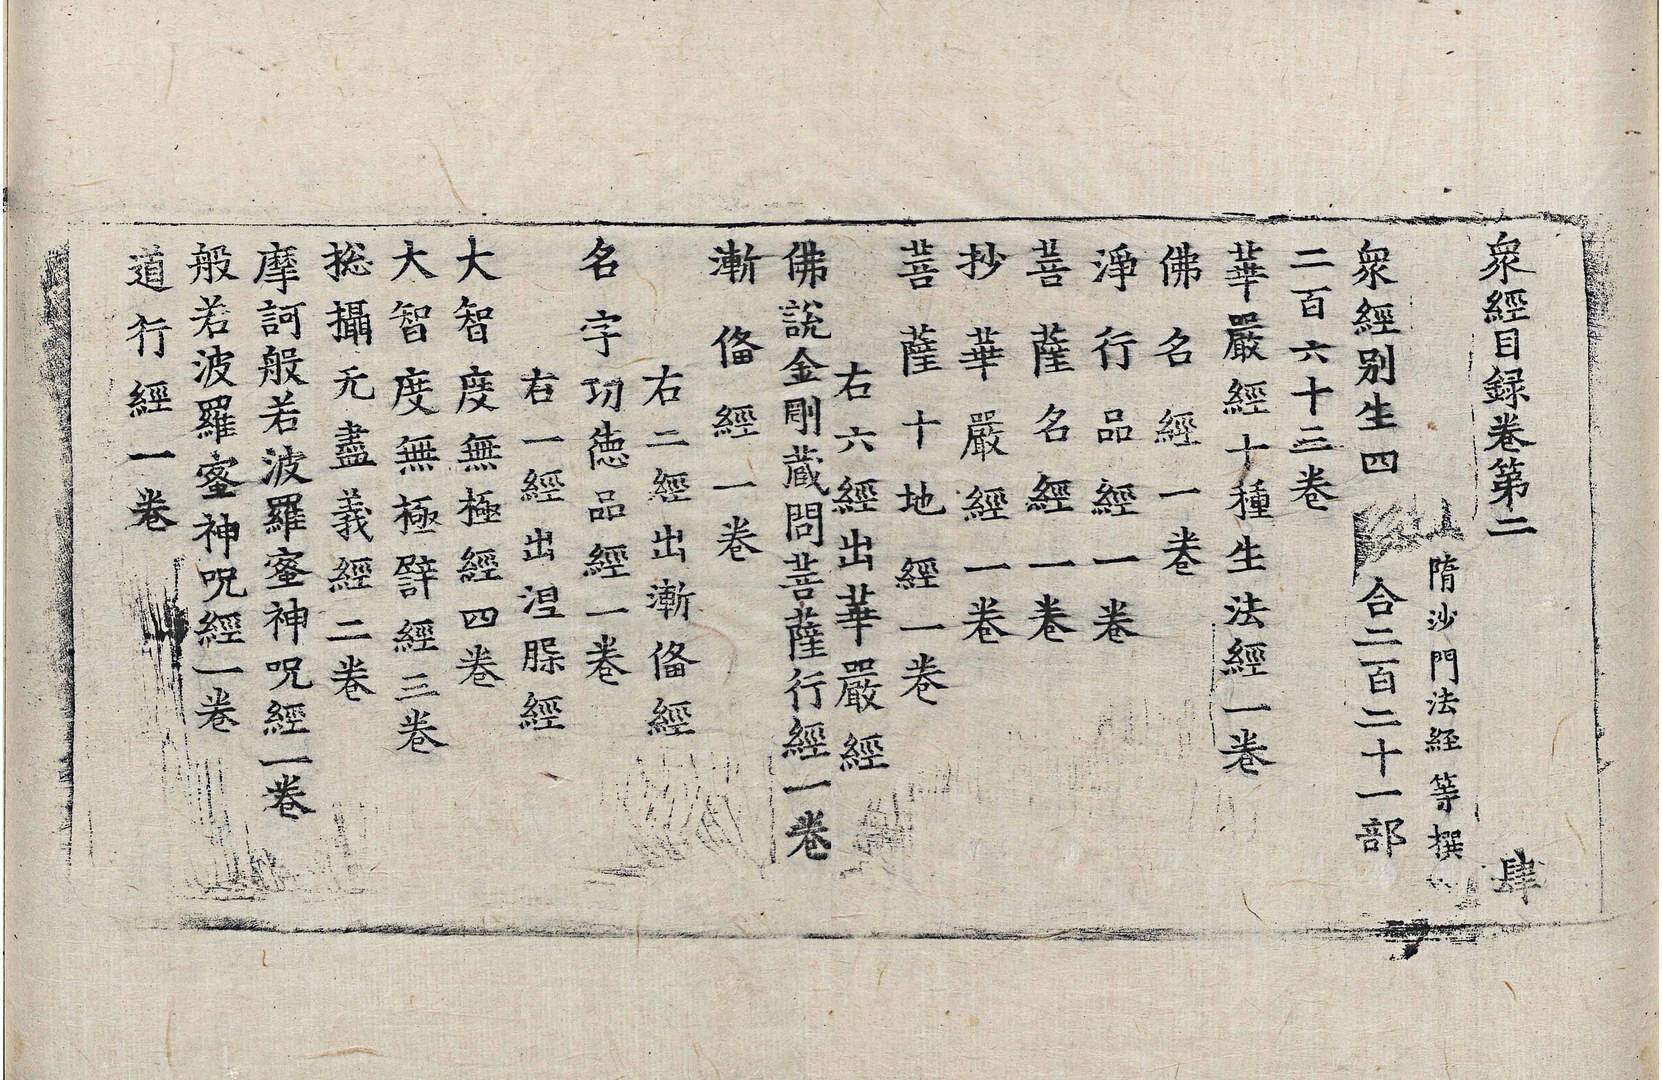 衆經目録卷第二 肆
隋沙門法経等撰
衆經别生四 合二百二十一部
二百六十三卷
華嚴經十種生法經一卷
佛名經一卷
淨行品經一卷
菩薩名經一卷
抄華嚴經一卷
菩薩十地經一卷
右六經出華嚴經
佛說金剛蔵問菩薩行經一卷
漸俻經一卷
右二經出漸俻經
名字功德品經一卷
右一經出涅槃經
大智度無極經四卷
大智度無極譬經三卷
捴攝无盡義經二卷
摩訶般若波羅蜜神呪經一卷
般若波羅蜜神呪經一卷
道行經一卷